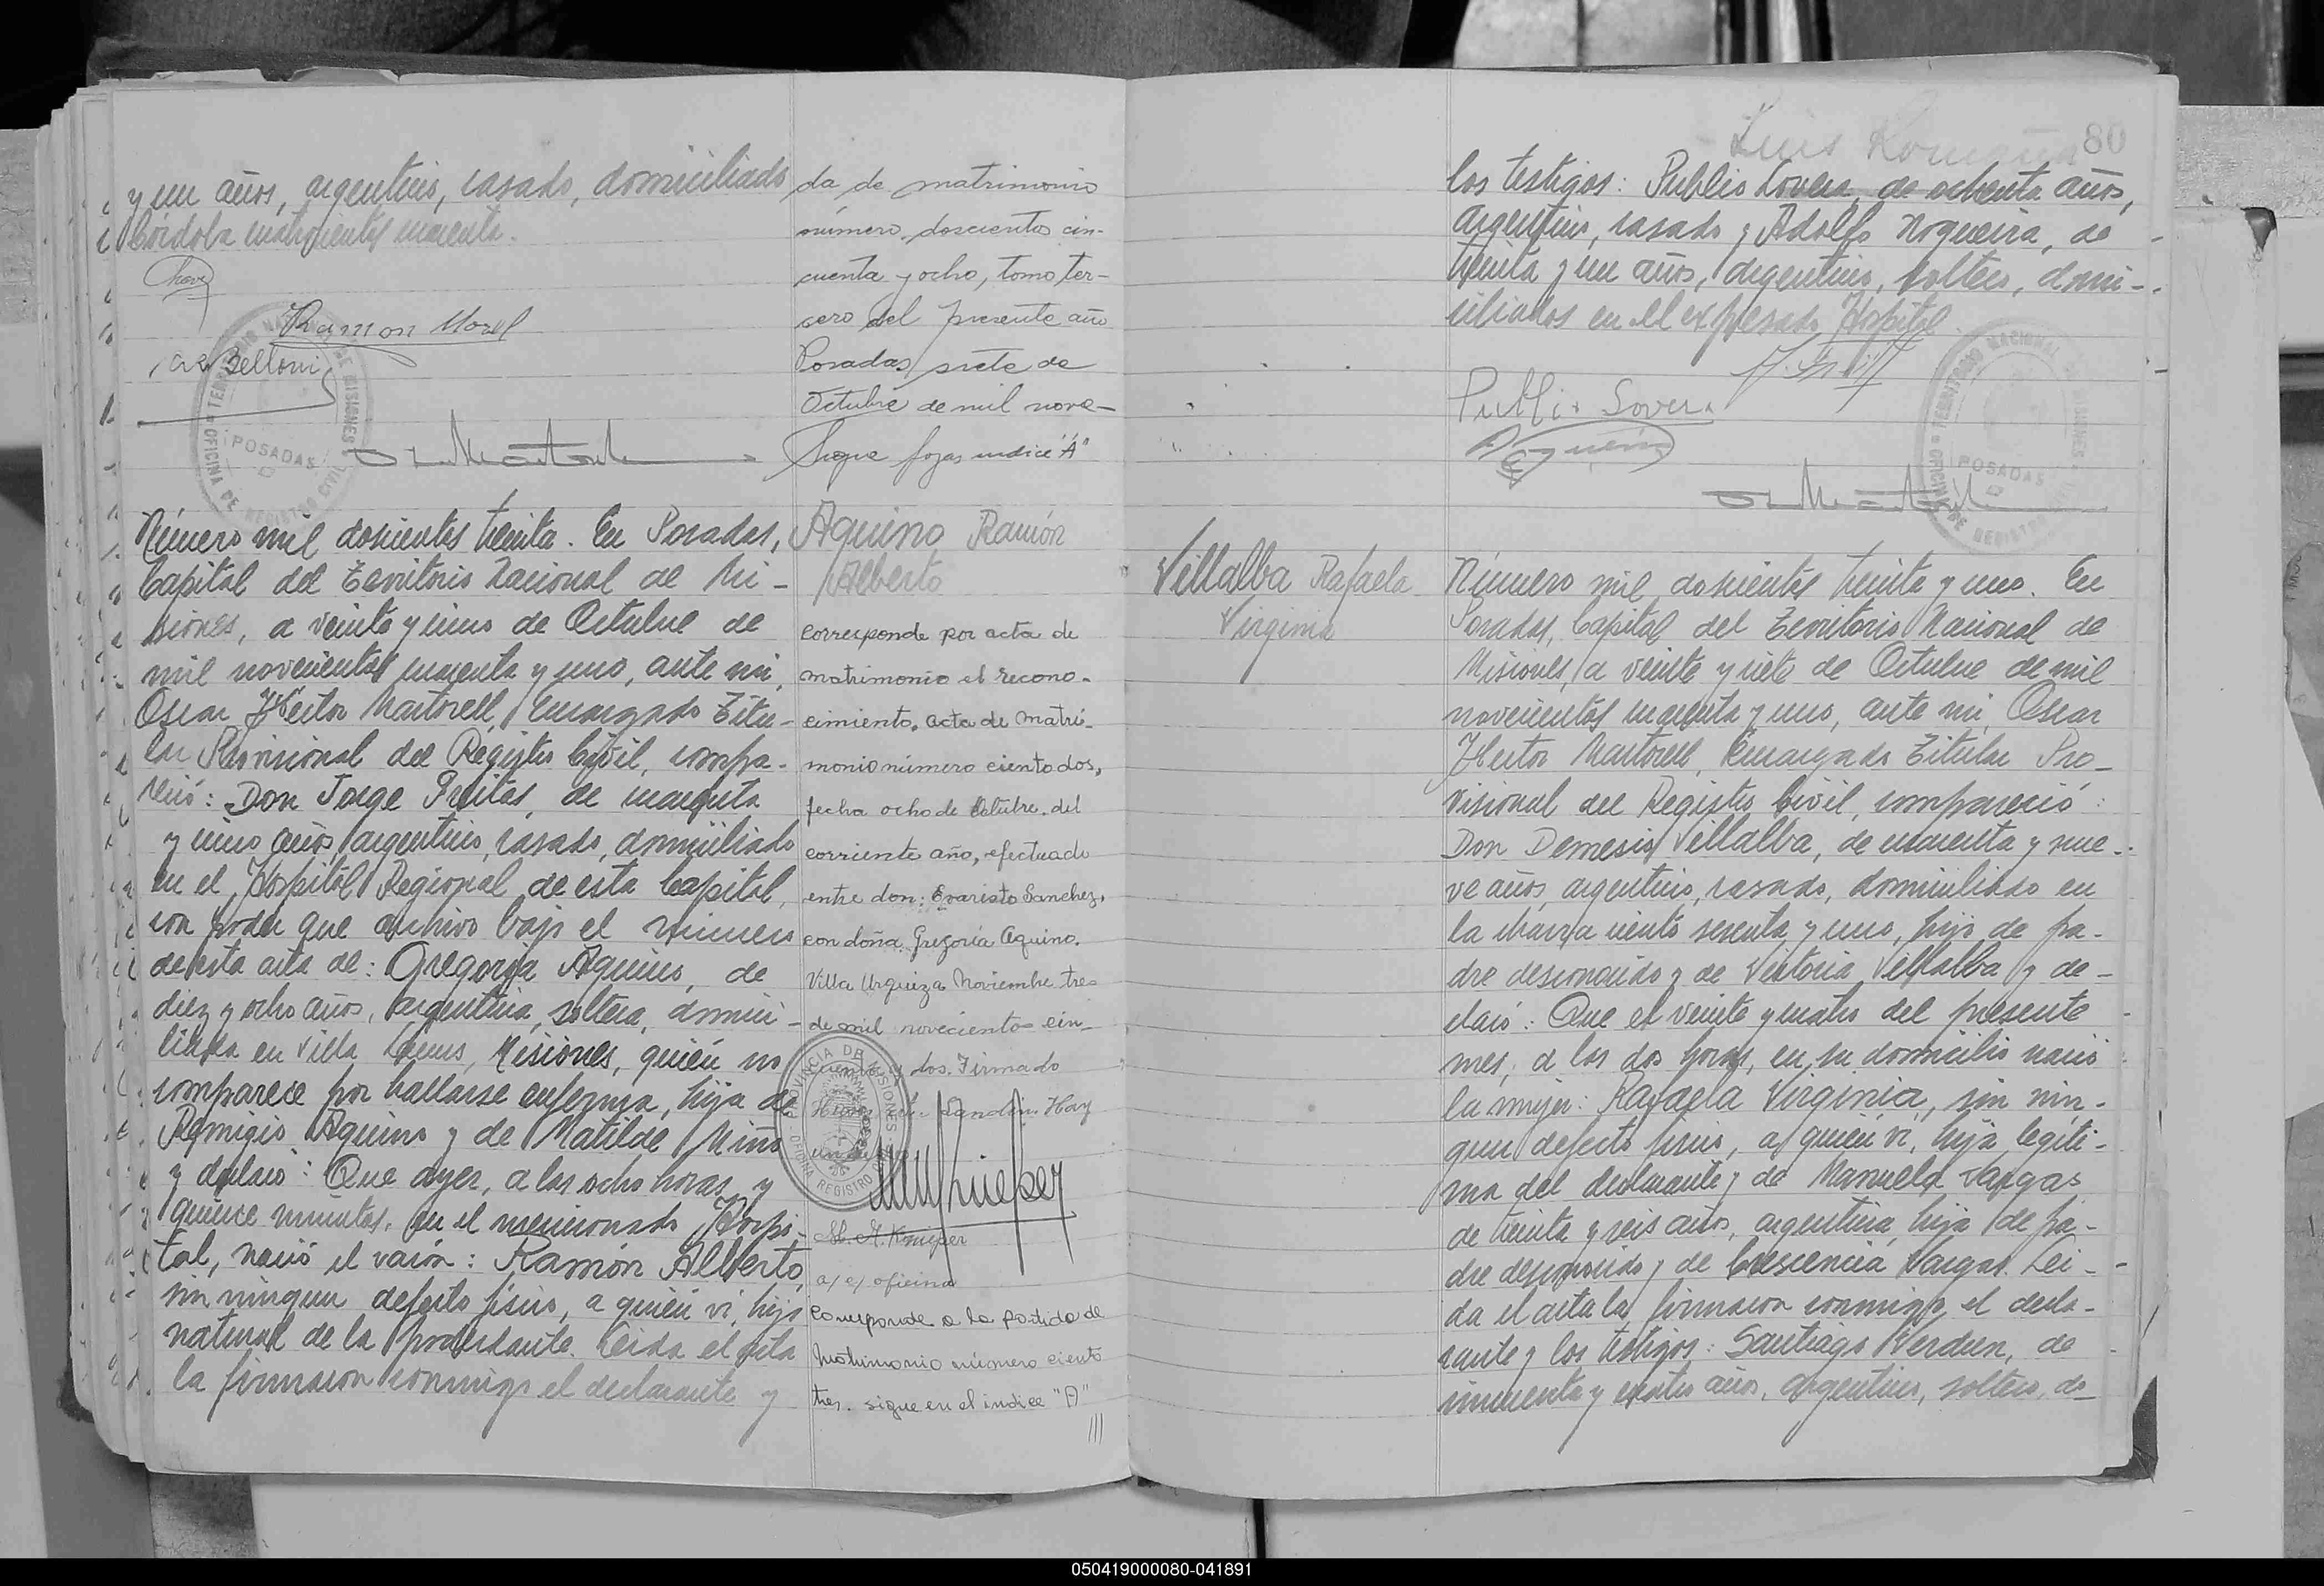 y un años, argentino, casado, domiciliado
Córdoba cuatrocientos cuarenta.
Ramon Morel
Belloni
TERRITORIO NACIONAL DE MISIONES
OFICINA DE REGISTRO CIVIL
POSADAS
da de matrimonio
número doscientos cin-
cuenta y ocho, tomo ter-
cero del presente año
Posadas, siete de
Octubre de mil nove-
Sigue fojas indice "A"
Número mil doscientos treinta. En Posadas,
Capital del Territorio Nacional de Mi-
siones, a veinte y cinco de Octubre de
mil novecientos cuarenta y uno, ante mi,
Oscar Héctor Martorell, Encargado Titu-
lar Provisional del Registro Civil, compa-
reció: Don Jorge Freitas, de cuarenta
y cinco años, argentino, casado, domiciliado
en el Hospital Regional de esta Capital,
con poder que archivo bajo el número
de esta acta de: Gregoria Aquino, de
diez y ocho años, argentina, soltera, domici-
liada en Villa Lanus, Misiones, quién no
comparece por hallarse enferma, hija de
Remigio Aquino y de Matilde Miño
y declaró: Que ayer, a las ocho horas y
quince minutos, en el mencionado Hospi-
tal, nació el varón: Ramón Alberto,
sin ningun defecto físico, a quién vi, hijo
natural de la poderdante. Leida el acta
la firmaron conmigo el declarante y
Aquino Ramón
Alberto
corresponde por acta de
matrimonio el recono-
cimiento. acta de matri-
monio número ciento dos,
fecha ocho de Octubre del
corriente año, efectuado
entre don: Evaristo Sanchez,
con doña Gregoria Aquino.
Villa Urquiza Noviembre tres
de mil novecientos cin-
cuenta y dos. Firmado
Hay
un sello
PROVINCIA DE MISIONES
OFICINA REGISTRO
M. A. Knieper
a/c/ oficina
Corresponde a la partida de
Matrimonio número ciento
tres. sigue en el indice "A"
///
Luis 80
los testigos: Publio Lovera, de ochenta años,
argentino, casado y Adolfo Nogueira, de
treinta y un años, argentino, soltero, domi-
ciliados en el expresado Hospital.
Publio Lovera
TERRITORIO NACIONAL DE MISIONES
OFICINA DE REGISTRO CIVIL
POSADAS
Villalba Rafaela
Virginia
Número mil doscientos treinta y uno. En
Posadas, Capital del Territorio Nacional de
Misiones, a veinte y siete de Octubre de mil
novecientos cuarenta y uno, ante mi, Oscar
Héctor Martorell, Encargado Titular Pro-
visional del Registro Civil, compareció:
Don Demesio Villalba, de cuarenta y nue-
ve años, argentino, casado, domiciliado en
la chacra ciento sesenta y uno, hijo de pa-
dre desconocido y de Victoria Villalba y de-
claró: Que el veinte y cuatro del presente
mes, a las dos horas, en su domicilio nació
la mujer: Rafaela Virginia, sin nin-
gun defecto físico, a quién vi, hija legíti-
ma del declarante y de Manuela Vargas
de treinta y seis años, argentina, hija de pa-
dre desconocido y de Crescencia Vargas. Lei-
da el acta la firmaron conmigo el decla-
rante y los testigos: Santiago Verdun, de
cincuenta y cuatro años, argentino, soltero, do-
050419000080-041891